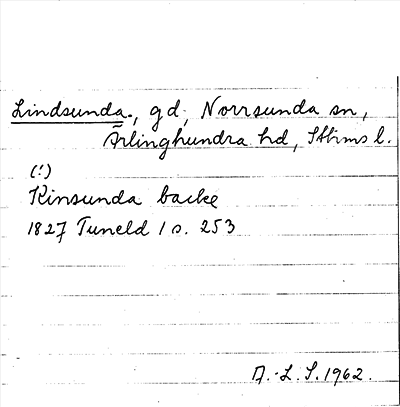 Lindsunda, gd, Norrsunda sn,
Ärlinghundra hd, Sthms l.
(!)
Kinsunda backe
1827 Tuneld 1 s. 253
A.-L. S. 1962.